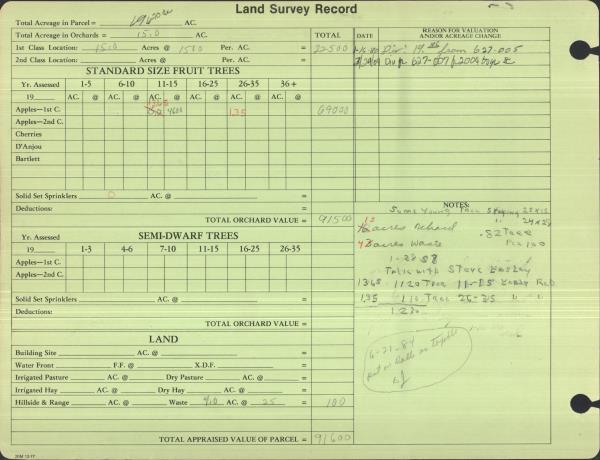 Land Survey Record
Total Acreage in Parcel = AC.
Total Acreage in Orchards = 15.0 AC.
1st Class Location: 15.0 Acres @ 1500 Per. AC. = 22500
2nd Class Location: Acres @ Per. AC. =
TOTAL DATE REASON FOR VALUATION AND/OR ACREAGE CHANGE
from 627-005
627-007
STANDARD SIZE FRUIT TREES
Yr. Assessed 1-5 6-10 11-15 16-25 26-35 36+
19 AC. @ AC. @ AC. @ AC. @ AC. @ AC. @
Apples—1st C. 4600 1.35 69000
Apples—2nd C.
Cherries
D'Anjou
Bartlett
Solid Set Sprinklers 0 AC. @ =
Deductions: =
TOTAL ORCHARD VALUE = 91500
SEMI-DWARF TREES
Yr. Assessed
19 1-3 4-6 7-10 11-15 16-25 26-35
Apples—1st C.
Apples—2nd C.
Solid Set Sprinklers AC. @ =
Deductions: =
TOTAL ORCHARD VALUE =
LAND
Building Site AC. @ =
Water Front F.F. @ X.D.F. =
Irrigated Pasture AC. @ Dry Pasture AC. @ =
Irrigated Hay AC. @ Dry Hay AC. @ =
Hillside & Range AC. @ Waste 4.0 AC. @ 25 = 100
TOTAL APPRAISED VALUE OF PARCEL = 91600
20M 12-77
NOTES:
Some Young Tree
acres Orchard
.82 Tree
acres Waste
Per 100
1-28-88
Talk with Steve
1365 1120 Tree 11-15
135 110 Tree 26-35 " "
1230
6-21-84